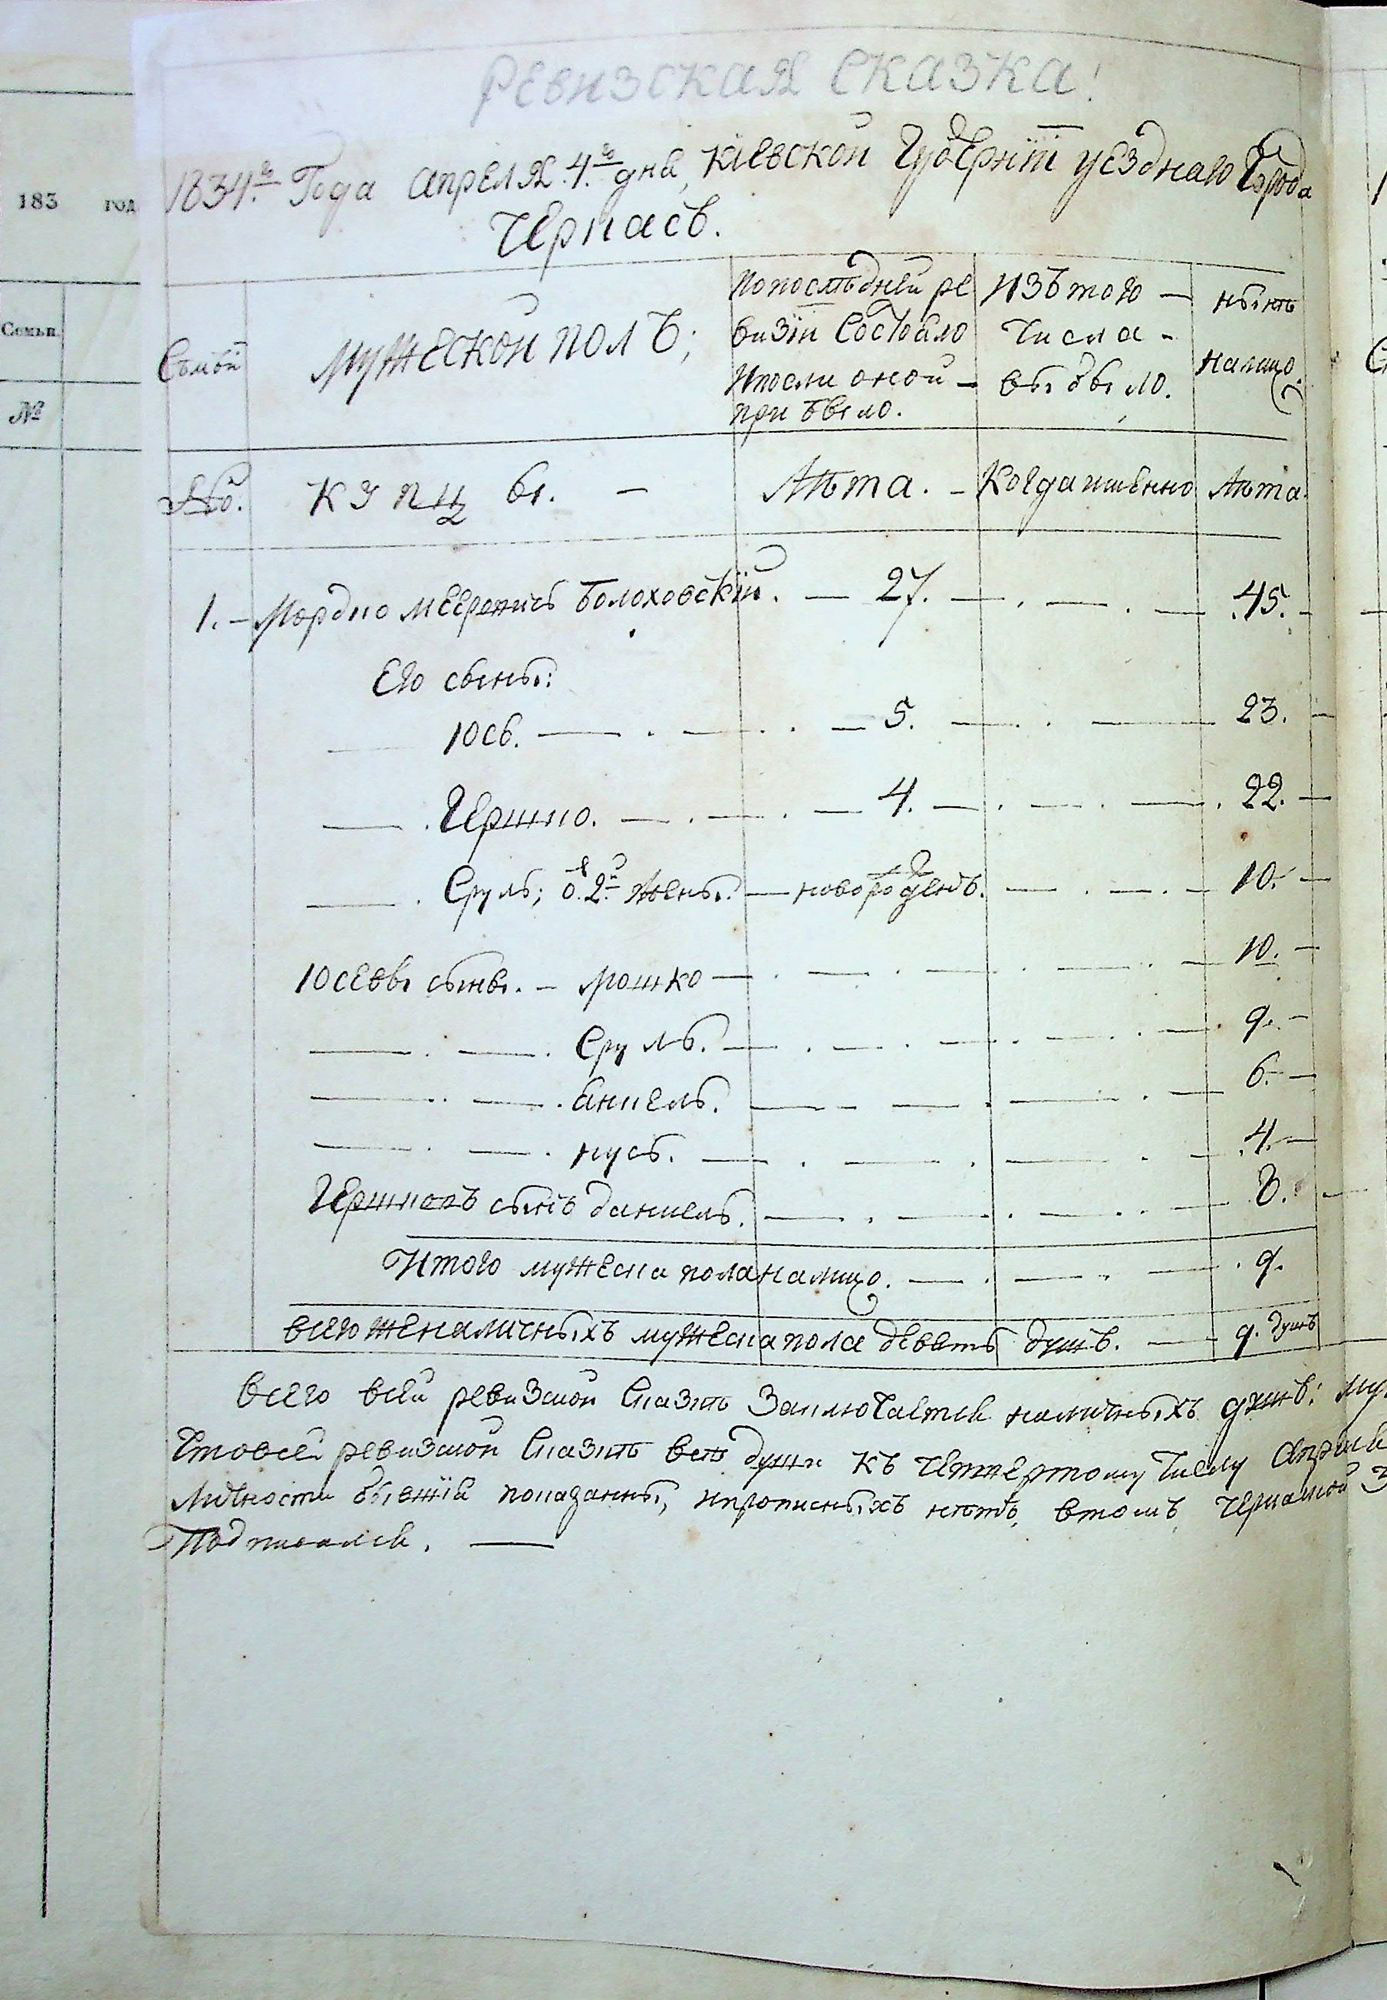 РЕВИЗСКАЯ СКАЗКА!
1834.го Года апреля 4.го дня, киевской Губернїи уезднаго Города
Черкасъ.
183 год
Семьи
№
Съмьи
мужеской полъ;
По последней ре
визїи состояло
и после оной –
прибыло.
изъ того –
числа –
выбыло.
нынѣ
налицо.
№й.
купцы. –
Лѣта. –
Когда именно
Лѣта.
1. – Мордко меерович Болоховскїй. – 27. – 45.
Его сыны:
Юсь. – 5. – 23.
Гершко. – 4. – 22.
Сруль; о.т 2й жены. – новорожденъ. – 10.
Юсевы сыны. – мошко – 10.
Сруль. – 9.
анкель. – 6.
нусь. – 4.
Гершковъ сынъ даниель. – 3.
Итого мужеска пола налицо. – 9.
всего же наличныхъ мужеска пола девять душъ. – 9. душъ
всего всей ревизской сказке заключается наличныхъ душъ:
что в сей ревизской сказке все души къ четвертому числу апреля
личности показаны, и прописныхъ нетъ, в томъ
Подписался. –